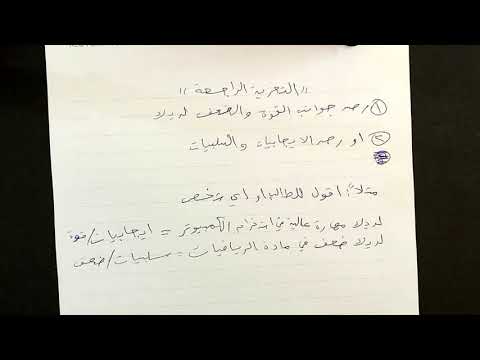 " التغذية الراجعة "
① رصد جوانب القوة والضعف لديك
② او رصد الايجابيات والسلبيات
مثلاً: اقول للطالب او اي شخص
لديك مهارة عالية في استخدام الكمبيوتر = ايجابيات/قوة
لديك ضعف في مادة الرياضيات = سلبيات/ضعف